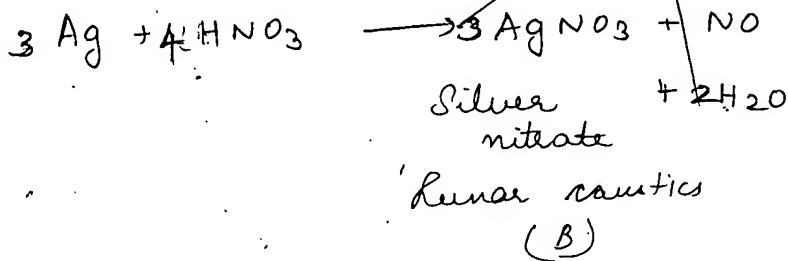 3 Ag + 4 HNO3 → 3 AgNO3 + NO
+ 2H2O
Silver
nitrate
Lunar caustics
(B)